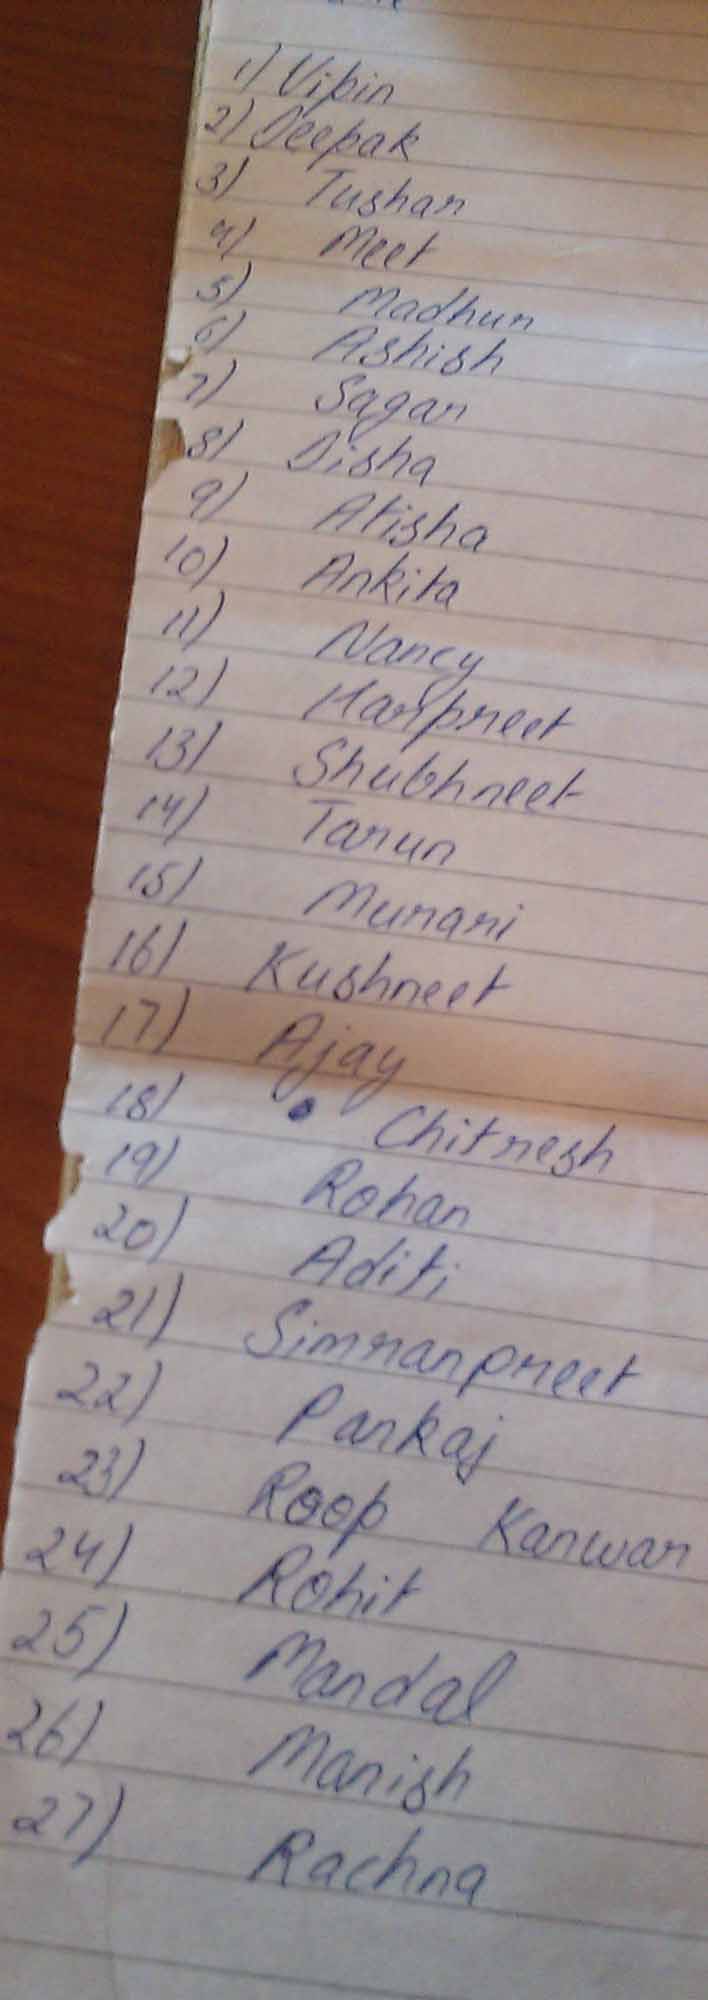 1) Vipin
2) Deepak
3) Tushar
4) Meet
5) Madhur
6) Ashish
7) Sagar
8) Disha
9) Atisha
10) Ankita
11) Nancy
12) Harpreet
13) Shubhneet
14) Tarun
15) Murari
16) Kushneet
17) Ajay
18) Chitresh
19) Rohan
20) Aditi
21) Simranpreet
22) Pankaj
23) Roop Kanwar
24) Rohit
25) Mandal
26) Manish
27) Rachna